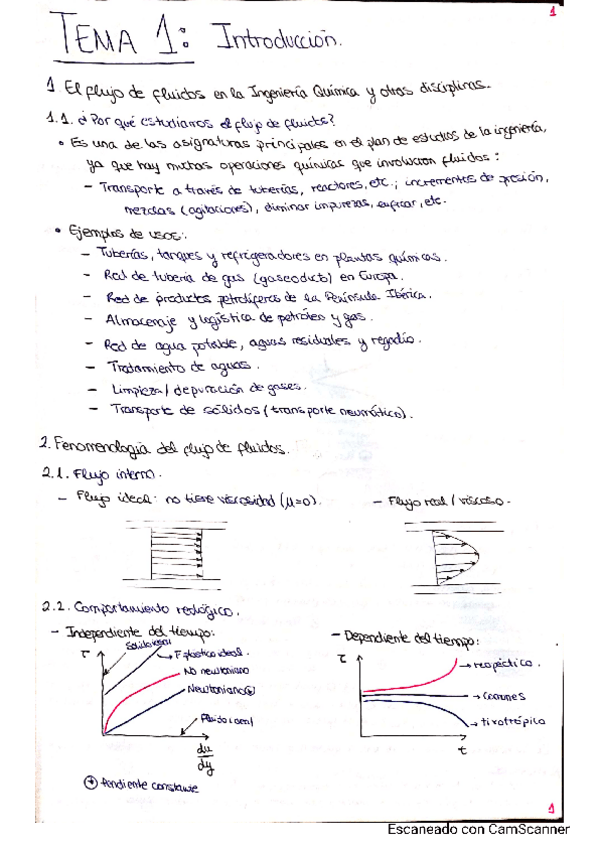 1
TEMA 1: Introducción.
1. El flujo de fluidos en la Ingeniería Química y otras disciplinas.
1.1. ¿Por qué estudiamos el flujo de fluidos?
• Es una de las asignaturas principales en el plan de estudios de la ingeniería,
ya que hay muchas operaciones químicas que involucran fluidos:
– Transporte a través de tuberías, reactores, etc.; incrementos de presión,
mezclas (agitaciones), eliminar impurezas, enfriar, etc.
• Ejemplos de usos:
– Tuberías, tanques y refrigeradores en plantas químicas.
– Red de tubería de gas (gaseoducto) en Europa.
– Red de productos petrolíferos de la Península Ibérica.
– Almacenaje y logística de petróleo y gas.
– Red de agua potable, aguas residuales y regadío.
– Tratamiento de aguas.
– Limpieza/depuración de gases.
– Transporte de sólidos (transporte neumático).
2. Fenomenología del flujo de fluidos.
2.1. Flujo interno.
– Flujo ideal: no tiene viscosidad (μ=0).
– Flujo real/viscoso.
2.2. Comportamiento reológico.
– Independiente del tiempo:
– Dependiente del tiempo:
τ
Sólido ideal
F. plástico ideal.
No newtoniano
Newtoniano
Fluido ideal
du
dy
pendiente constante
τ
reopéctico.
comunes
tixotrópico
t
1
Escaneado con CamScanner